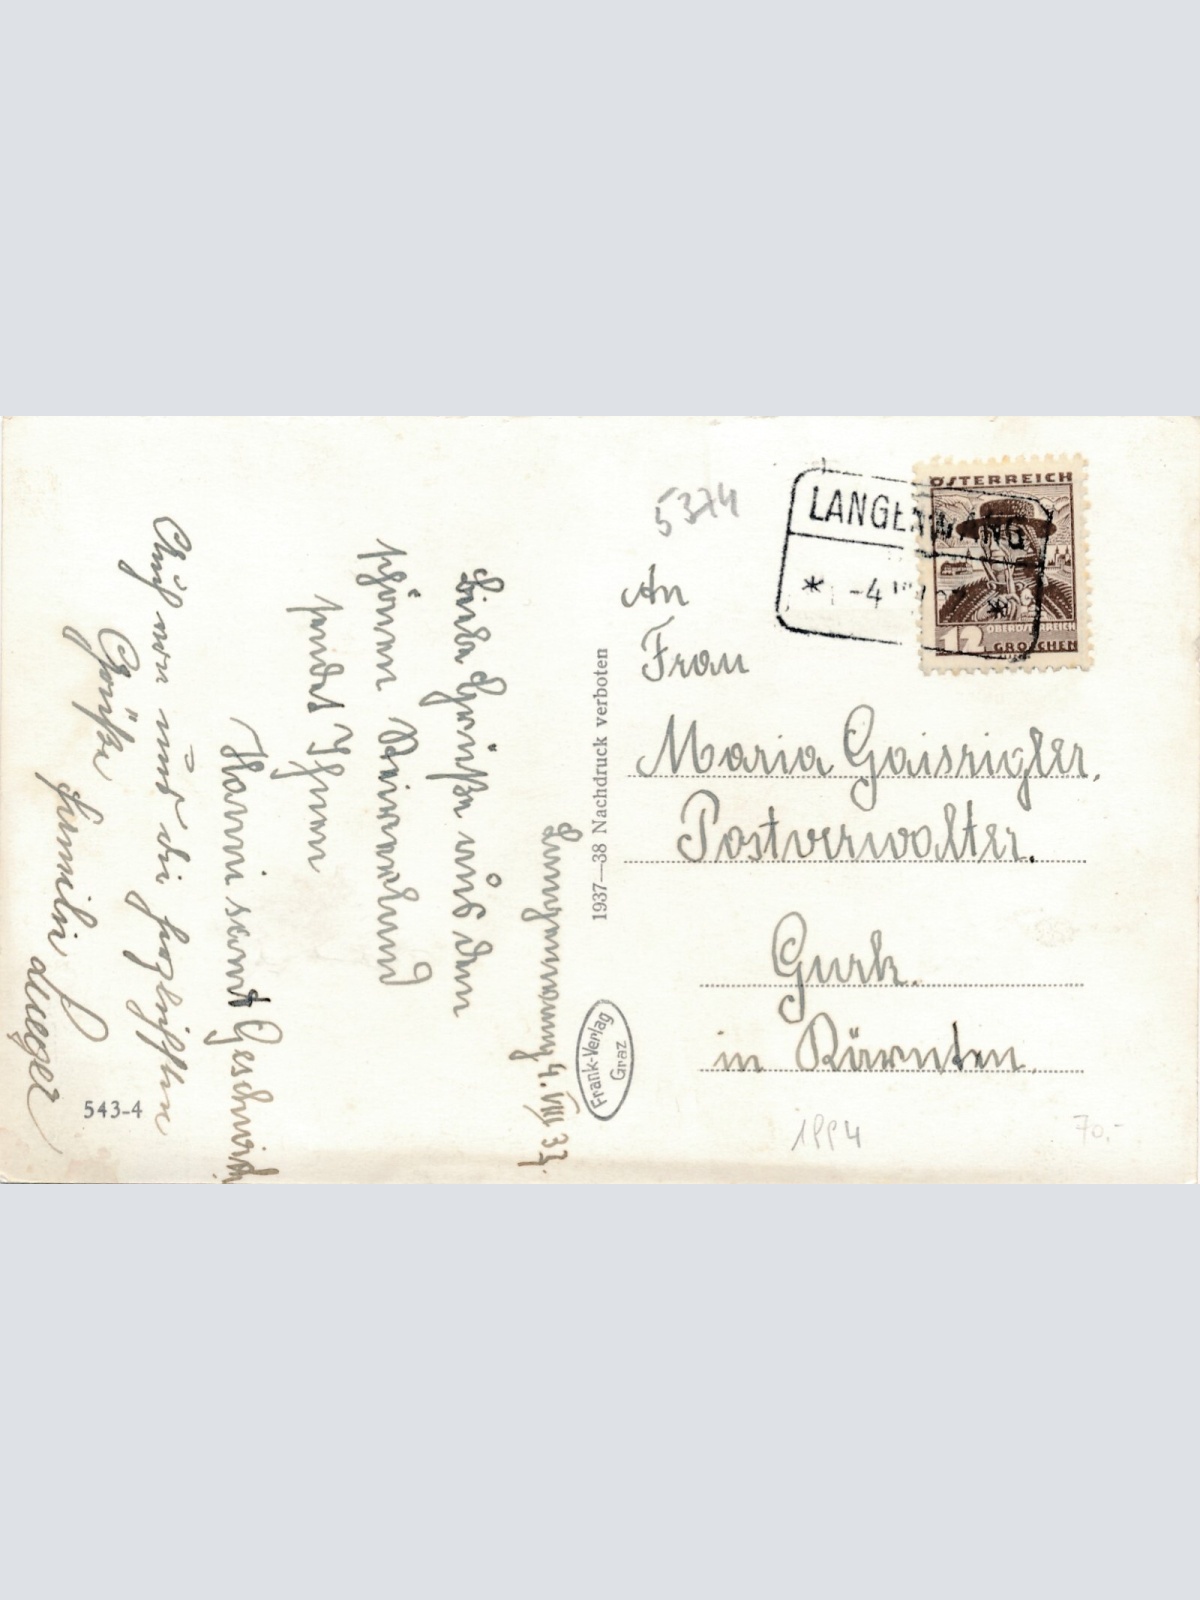 Langenwang 4. VIII 37.
Liebe Grüße aus dem
schönen
sendet Ihnen
Hanni samt Geschwister
Auch von uns die herzlichsten
Grüße Familie
543-4
1937—38 Nachdruck verboten
Frank-Verlag
Graz
5374
LANGENWANG
* -4 *
ÖSTERREICH
OBERÖSTERREICH
12 GROSCHEN
An
Frau
Maria Gaisrigler.
Postverwalter.
Gurk.
in Kärnten.
1994
70,-